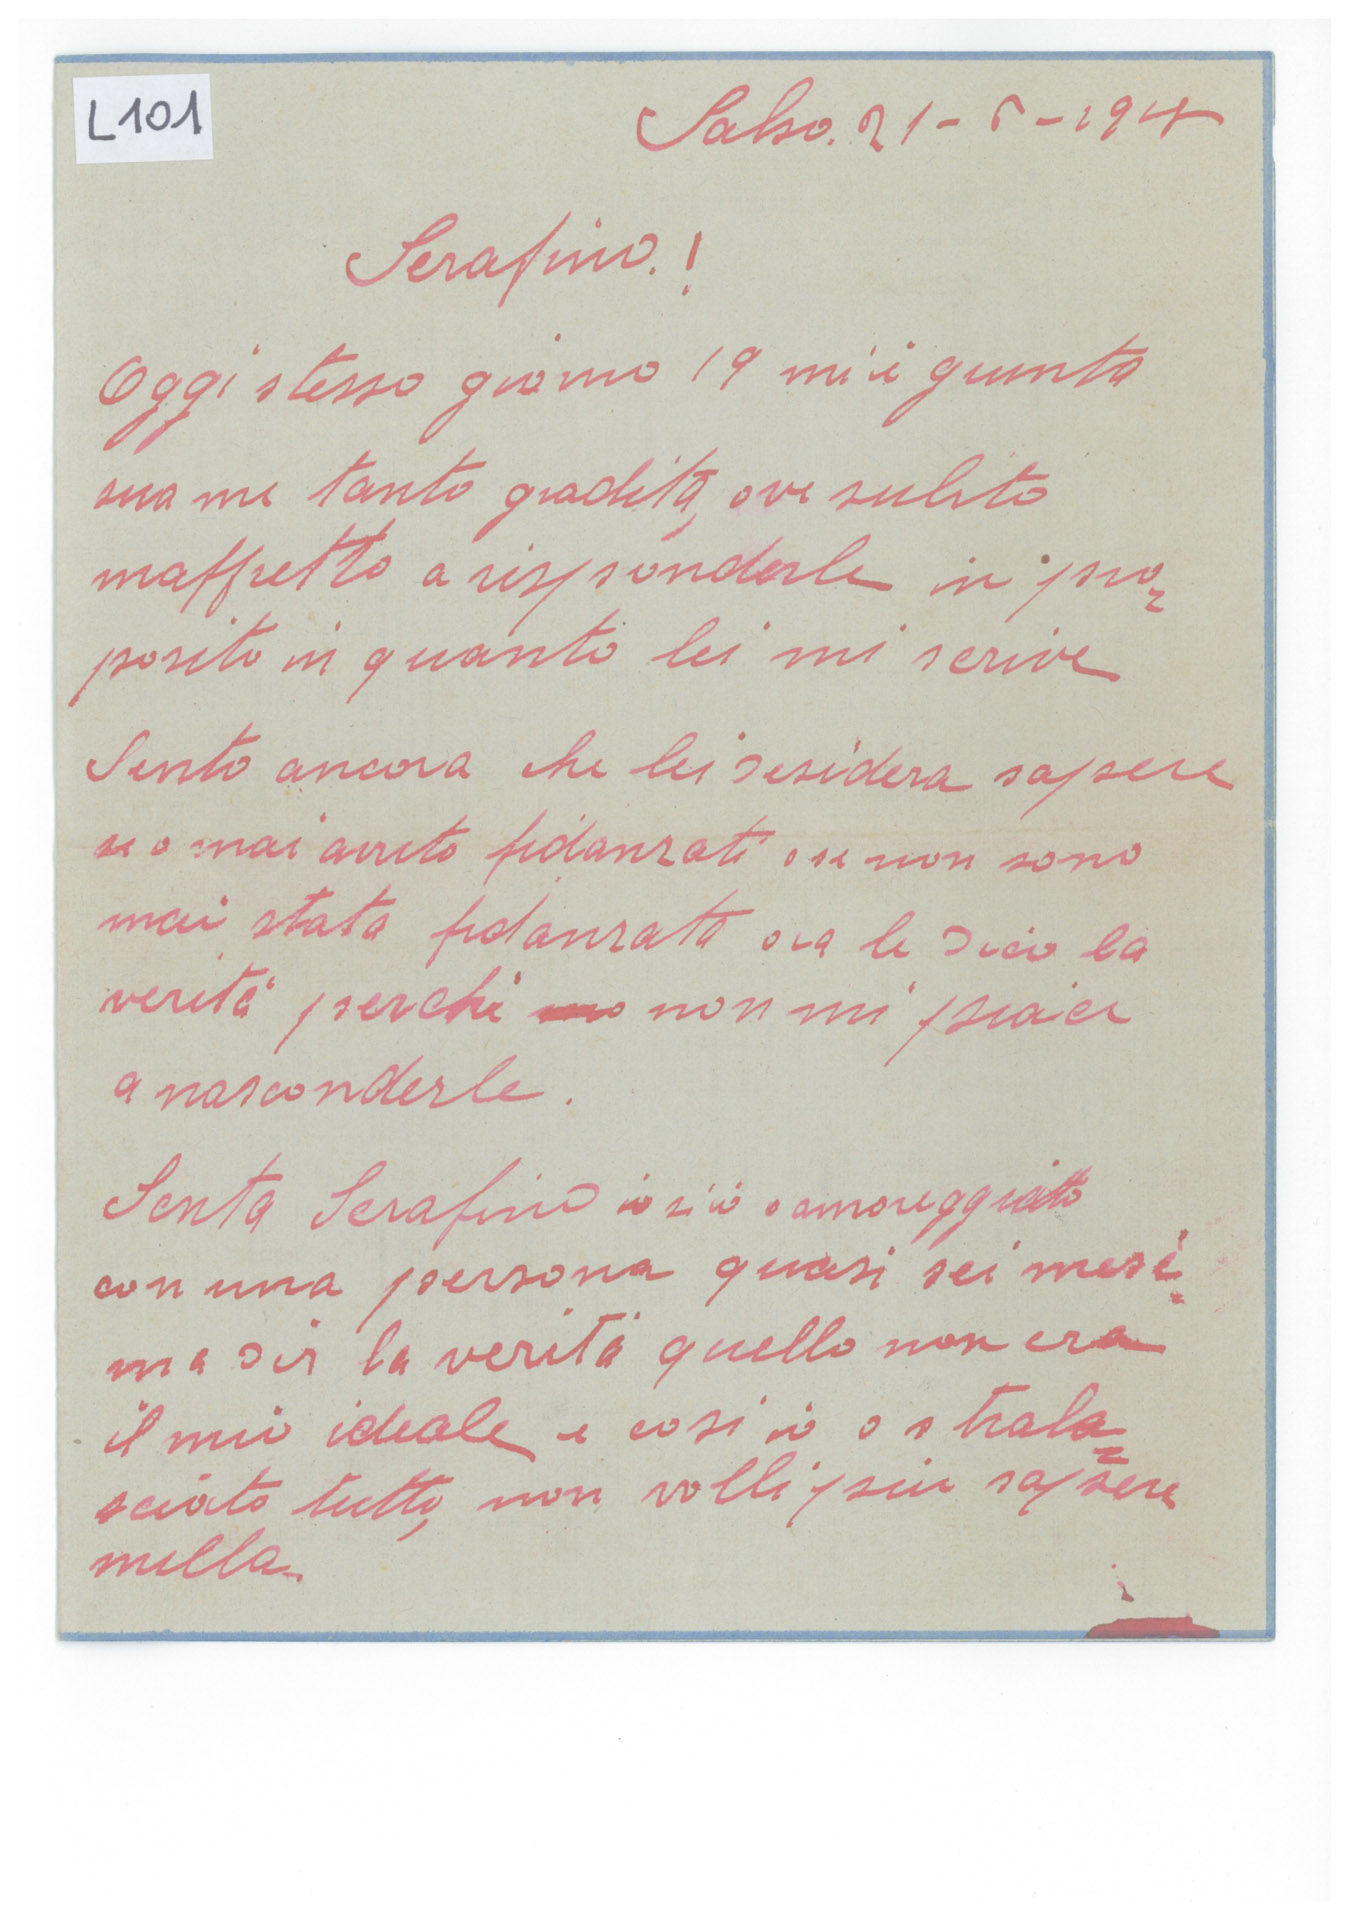 L101
Salso. 21-5-194
Serafino.!
Oggi stesso giorno 19 mi è giunta
sua me tanto gradita, ove subito
maffretto a risponderle in pro=
posito in quanto lei mi scrive
Sento ancora che lei desidera sapere
se o mai avuto fidanzati o se non sono
mai stata fidanzata ora le dico la
verità perchè non mi piace
a nasconderle.
Senta Serafino io si o amoreggiato
con una persona quasi sei mesi=
ma dir la verità quello non era
il mio ideale e così io o strala=
sciato tutto, non volli più sapere
nulla.